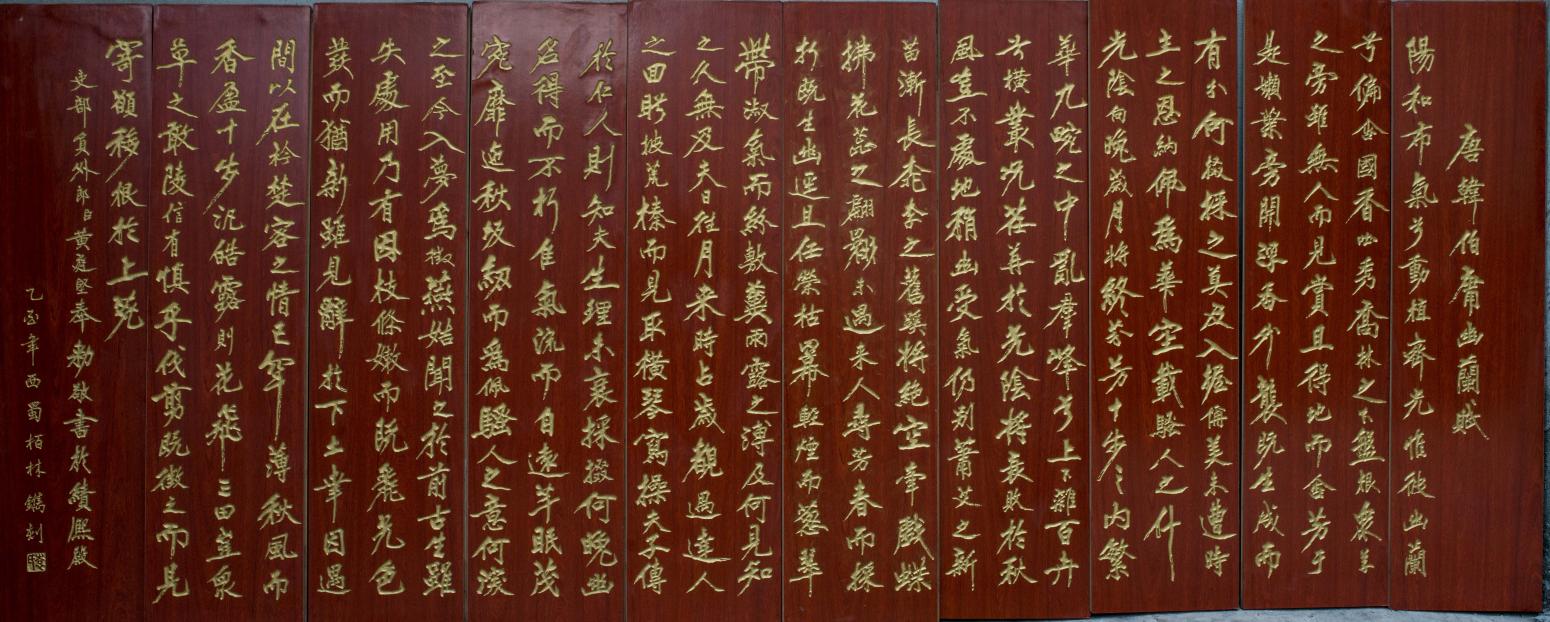 唐韓伯庸幽蘭賦
陽和布氣兮動植齊光惟彼幽蘭
兮偏含國香吐秀喬林之下盤根衆草
之旁雖無人而見賞且得地而含芳于
是嫩葉旁開浮香外襲既生成而
有分何掇採之莫及入握稱美未遭時
主之恩納佩爲華空載騷人之什
光陰向晚歲月將終芬芳十步之內繁
華九畹之中亂群峰兮上下雜百卉
兮橫叢況荏苒於光陰將衰敗於秋
風豈不處地稍幽受氣仍別蕭艾之新
苗漸長桃李之舊蹊將絕空牽戲蝶
拂花蕊之翩翻未遇来人尋芳春而採
折既生幽逕且任榮枯羃輕煙而葱翠
帶淑氣而紛敷冀雨露之溥及何見知
之久無及夫日往月来時占歲覿遇達人
之回眄披荒榛而見取橫琴寫操夫子傳
於仁人則知夫生理未衰採掇何晚幽
名得而不朽佳氣流而自遠羊眠茂
宛靡迤秋坂紉而爲佩騷人之意何深
之至今入夢爲徵燕姞聞之於前古生雖
失處用乃有因枝條嫩而既飛光色
發而猶新雖見辭於下土幸因遇
間以在衿楚客之情已罕薄秋風而
香盈十步汎皓露則花飛三田豈衆
草之敢陵信有慎乎伐翦既徵之而見
寄願移根於上苑
吏部員外郎臣黃庭堅奉敕敬書於績熙殿
乙亥年西蜀柏林鐫刻